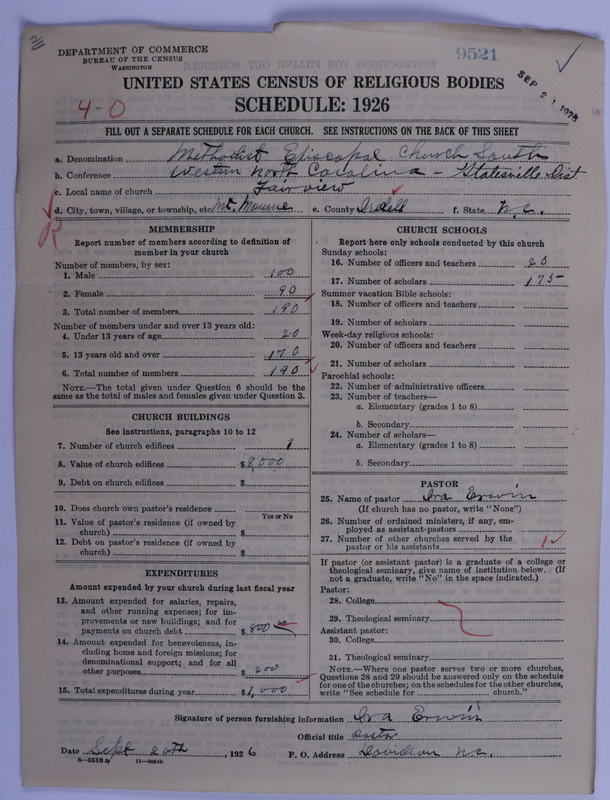 DEPARTMENT OF COMMERCE
BUREAU OF THE CENSUS
WASHINGTON
9521
SEP 21 1926
UNITED STATES CENSUS OF RELIGIOUS BODIES
4-0
SCHEDULE: 1926
FILL OUT A SEPARATE SCHEDULE FOR EACH CHURCH. SEE INSTRUCTIONS ON THE BACK OF THIS SHEET
a. Denomination Methodist Episcopal Church South
b. Conference Western North Carolina - Statesville Dist.
c. Local name of church Fairview
d. City, town, village, or township, etc. Mt. Mourne e. County Iredell f. State N.C.
MEMBERSHIP
Report number of members according to definition of member in your church
Number of members, by sex:
1. Male 100
2. Female 90
3. Total number of members 190
Number of members under and over 13 years old:
4. Under 13 years of age 20
5. 13 years old and over 170
6. Total number of members 190
NOTE.—The total given under Question 6 should be the same as the total of males and females given under Question 3.
CHURCH BUILDINGS
See instructions, paragraphs 10 to 12
7. Number of church edifices 1
8. Value of church edifices $8,000
9. Debt on church edifices $
10. Does church own pastor's residence
Yes or No
11. Value of pastor's residence (if owned by church) $
12. Debt on pastor's residence (if owned by church) $
EXPENDITURES
Amount expended by your church during last fiscal year
13. Amount expended for salaries, repairs, and other running expenses; for improvements or new buildings; and for payments on church debt $800
14. Amount expended for benevolences, including home and foreign missions; for denominational support; and for all other purposes $200
15. Total expenditures during year $1,000
CHURCH SCHOOLS
Report here only schools conducted by this church
Sunday schools:
16. Number of officers and teachers 20
17. Number of scholars 175
Summer vacation Bible schools:
18. Number of officers and teachers
19. Number of scholars
Week-day religious schools:
20. Number of officers and teachers
21. Number of scholars
Parochial schools:
22. Number of administrative officers
23. Number of teachers—
a. Elementary (grades 1 to 8)
b. Secondary
24. Number of scholars—
a. Elementary (grades 1 to 8)
b. Secondary
PASTOR
25. Name of pastor Ira Erwin
(If church has no pastor, write "None")
26. Number of ordained ministers, if any, employed as assistant-pastors
27. Number of other churches served by the pastor or his assistants 1
If pastor (or assistant pastor) is a graduate of a college or theological seminary, give name of institution below. (If not a graduate, write "No" in the space indicated.)
Pastor:
28. College
29. Theological seminary
Assistant pastor:
30. College
31. Theological seminary
NOTE.—Where one pastor serves two or more churches, Questions 28 and 29 should be answered only on the schedule for one of the churches; on the schedules for the other churches, write "See schedule for church."
Signature of person furnishing information Ira Erwin
Official title Pastor
Date Sept 20th, 1926 P. O. Address Davidson N.C.
8—5518a 11—9024b